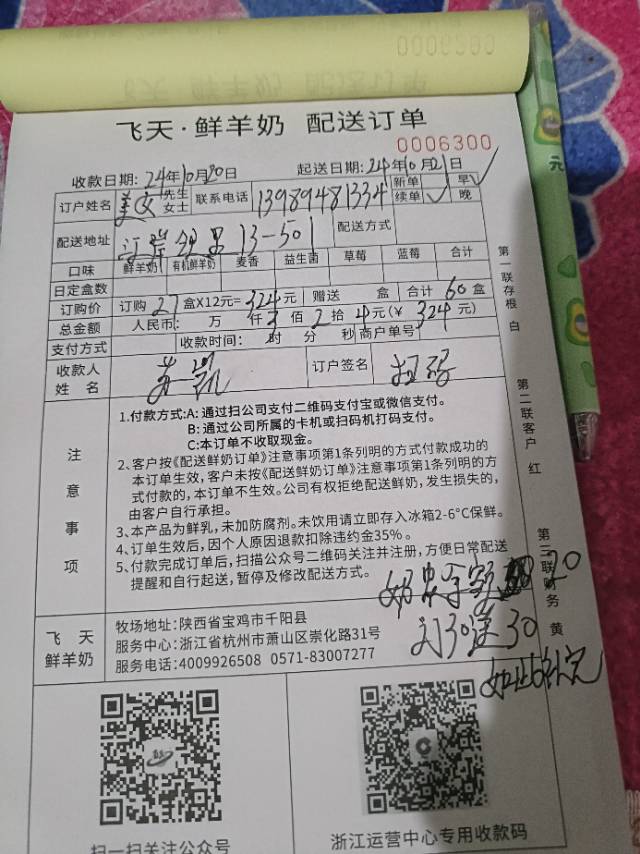 飞天·鲜羊奶 配送订单
0006300
收款日期: 24年10月20日 起送日期: 24年10月21日
订户姓名 姜女 先生 女士 联系电话 13989481334 新单 早√
续单 √ 晚
配送地址 13-501 配送方式
口味 鲜羊奶 有机鲜羊奶 麦香 益生菌 草莓 蓝莓 合计
日定盒数
订购价 订购 27 盒X12元= 324 元 赠送 盒 合计 60 盒
总金额 人民币: 万 仟 3 佰 2 拾 4 元(￥ 324 元)
支付方式 收款时间: 时 分 秒 商户单号
收款人姓名 凯 订户签名 扫码
注意事项
1.付款方式:A: 通过扫公司支付二维码支付宝或微信支付。
B: 通过公司所属的卡机或扫码机打码支付。
C:本订单不收取现金。
2、客户按《配送鲜奶订单》注意事项第1条列明的方式付款成功的
本订单生效，客户未按《配送鲜奶订单》注意事项第1条列明的方
式付款的，本订单不生效。公司有权拒绝配送鲜奶，发生损失的，
由客户自行承担。
3、本产品为鲜乳，未加防腐剂。未饮用请立即存入冰箱2-6°C保鲜。
4、订单生效后，因个人原因退款扣除违约金35%。
5、付款完成订单后，扫描公众号二维码关注并注册，方便日常配送
提醒和自行起送，暂停及修改配送方式。
奶票余额 20
订30送30
飞天鲜羊奶
牧场地址:陕西省宝鸡市千阳县
服务中心:浙江省杭州市萧山区崇化路31号
服务电话:4009926508 0571-83007277
扫一扫关注公众号
浙江运营中心专用收款码
第一联存根 白
第二联客户 红
第三联财务 黄